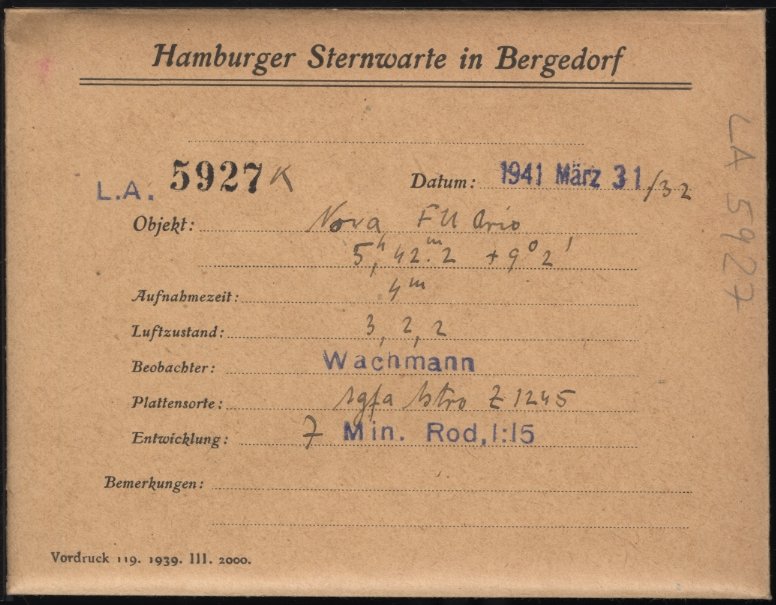 Hamburger Sternwarte in Bergedorf
L.A. 5927 K Datum: 1941 März 31/32
Objekt: Nova FU Orio
5ʰ, 42ᵐ.2 +9° 2'
Aufnahmezeit: 4ᵐ
Luftzustand: 3, 2, 2
Beobachter: Wachmann
Plattensorte: Agfa Astro Z 1245
Entwicklung: 7 Min. Rod, 1:15
Bemerkungen:
Vordruck 119. 1939. III. 2000.
LA 5927